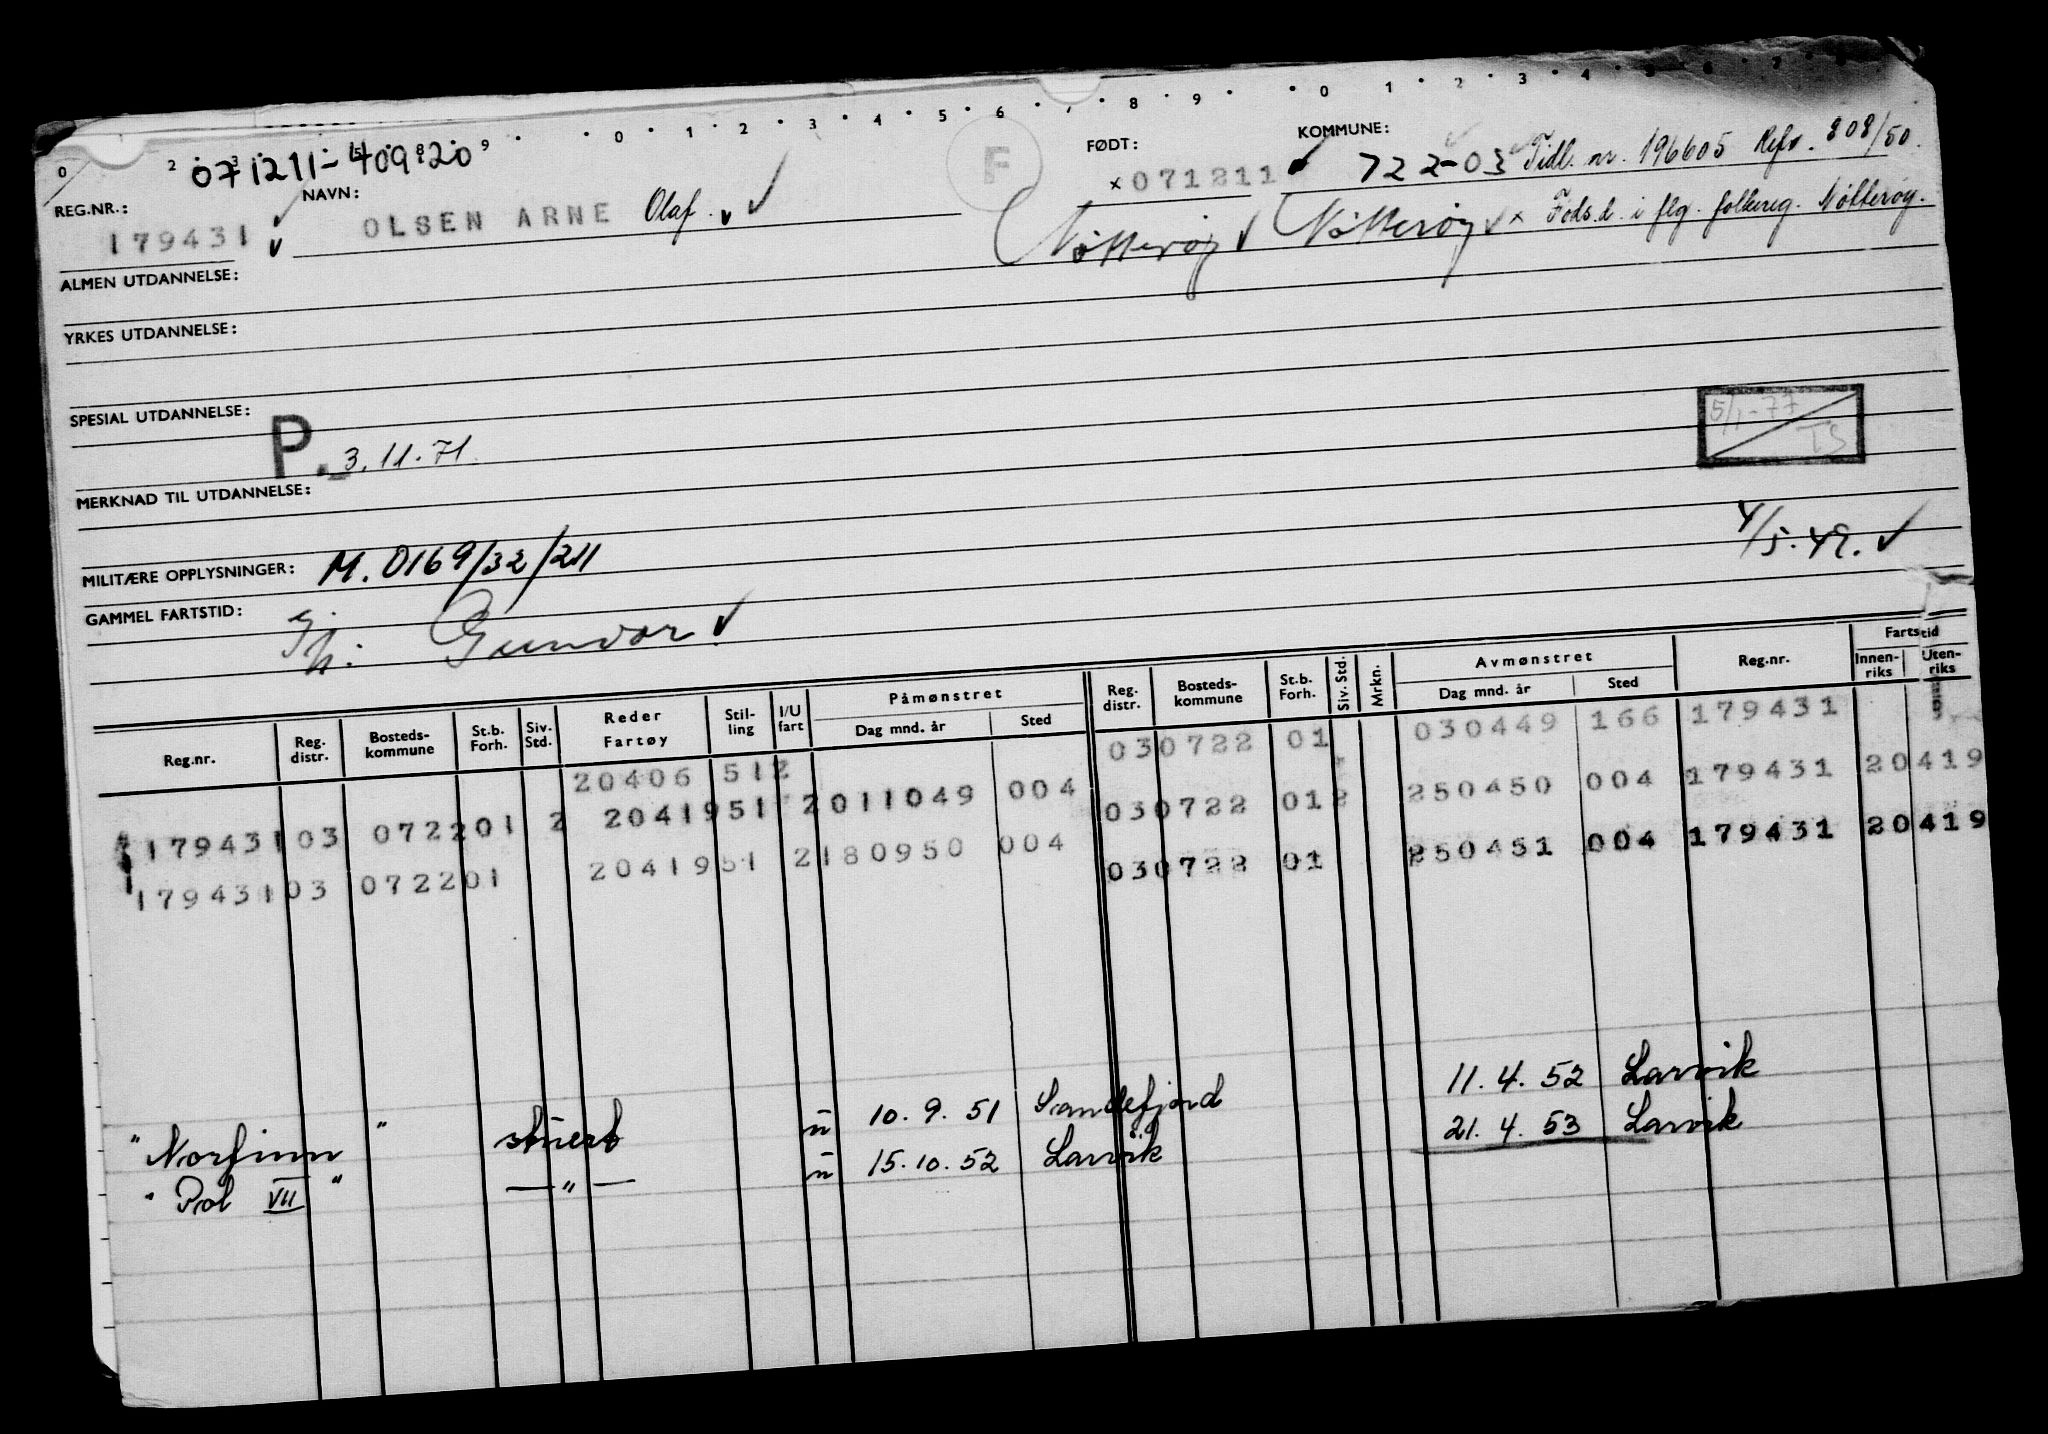 0 1 2 3 4 5 6 7 8 9 0 1 2 3 4 5 6 7 8
071211-40920
FØDT: KOMMUNE:
F
x071211 722-03 Tidl. nr. 196605 Refv. 808/50.
REG.NR.: NAVN:
179431 OLSEN ARNE Olaf.
Nøtterøy Nøtterøy x Føds.d. i flg. folkereg. Nøtterøy.
ALMEN UTDANNELSE:
YRKES UTDANNELSE:
SPESIAL UTDANNELSE:
P. 3.11.71.
5/1-77 TS
MERKNAD TIL UTDANNELSE:
MILITÆRE OPPLYSNINGER: M.0169/32/211
4/5.49.
GAMMEL FARTSTID:
Gj. h. Gunvor
Reg.nr. Reg. distr. Bosteds- kommune St.b. Forh. Siv. Std. Reder Fartøy Stil- ling I/U fart Påmønstret Dag mnd. år Sted Reg. distr. Bosteds- kommune St.b. Forh. Siv. Std. Mrkn. Avmønstret Dag mnd. år Sted Reg.nr. Fartstid Innen- riks Uten- riks
20406 512 030722 01 030449 166 179431
179431 03 0722 01 2 20419 51 2 011049 004 030722 01 2 250450 004 179431 20419
179431 03 0722 01 20419 51 2 180950 004 030722 01 250451 004 179431 20419
"Norfinn" stuert u 10.9.51 Sandefjord 11.4.52 Larvik
"Pol VII" —"— u 15.10.52 Larvik 21.4.53 Larvik